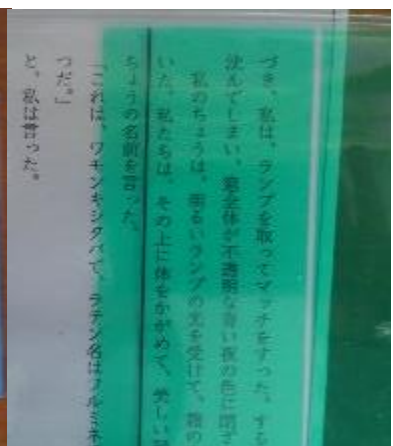 づき、私は、ランプを取ってマッチをすった。す
沈んでしまい、窓全体が不透明な青い夜の色に閉ざ
私のちょうは、明るいランプの光を受けて、箱の
いた。私たちは、その上に体をかがめて、美しい
ちょうの名前を言った。
「これは、ワモンキシタバで、ラテン名はフルミネ
つだ。」
と、私は言った。